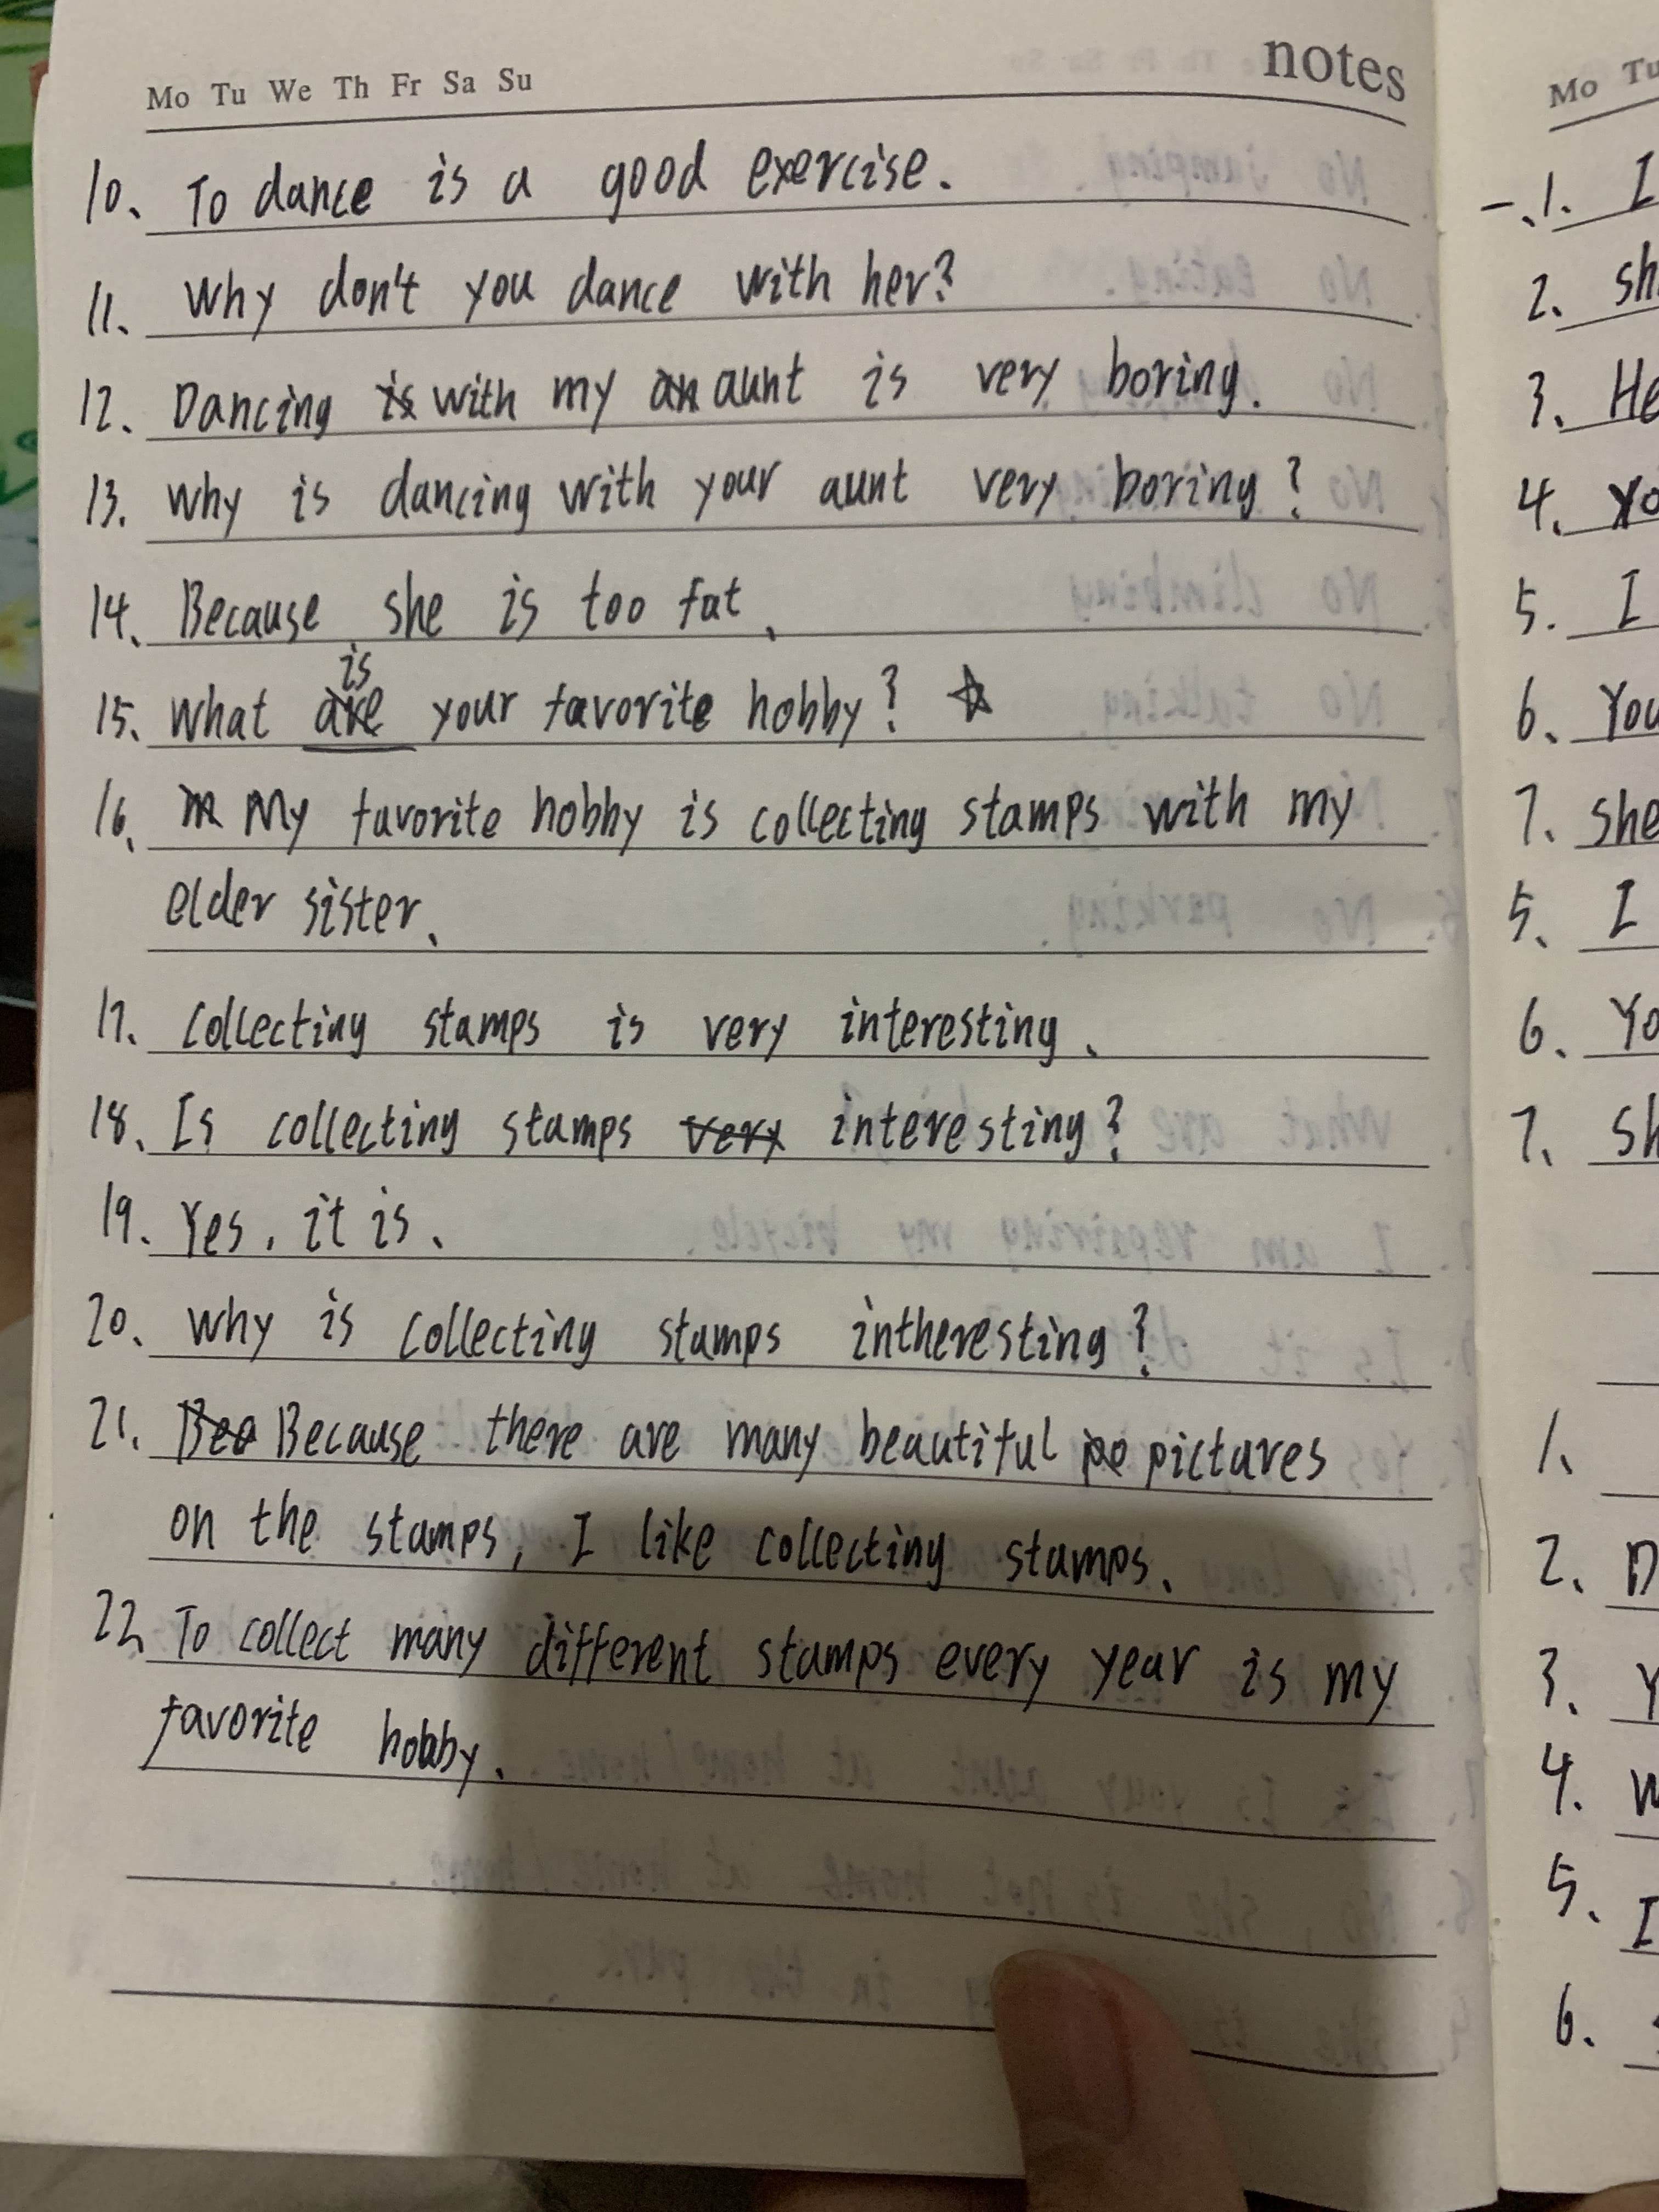 Mo Tu We Th Fr Sa Su notes
10. To dance is a good exercise.
11. Why don't you dance with her?
12. Dancing is with my an aunt is very boring.
13. Why is dancing with your aunt very boring?
14. Because she is too fat.
is
15. What are your favorite hobby? ☆
16. m My favorite hobby is collecting stamps with my
elder sister.
17. Collecting stamps is very interesting.
18. Is collecting stamps very interesting?
19. Yes, it is.
20. Why is collecting stamps intheresting?
21. Bea Because there are many beautiful po pictares
on the stamps, I like collecting stamps.
22. To collect many different stamps every year is my
favorite hobby.
Mo Tu
一、1. I
2. Sh
3. He
4. Yo
5. I
6. You
7. She
5. I
6. Yo
7. Sh
1.
2. D
3. Y
4. W
5. I
6.